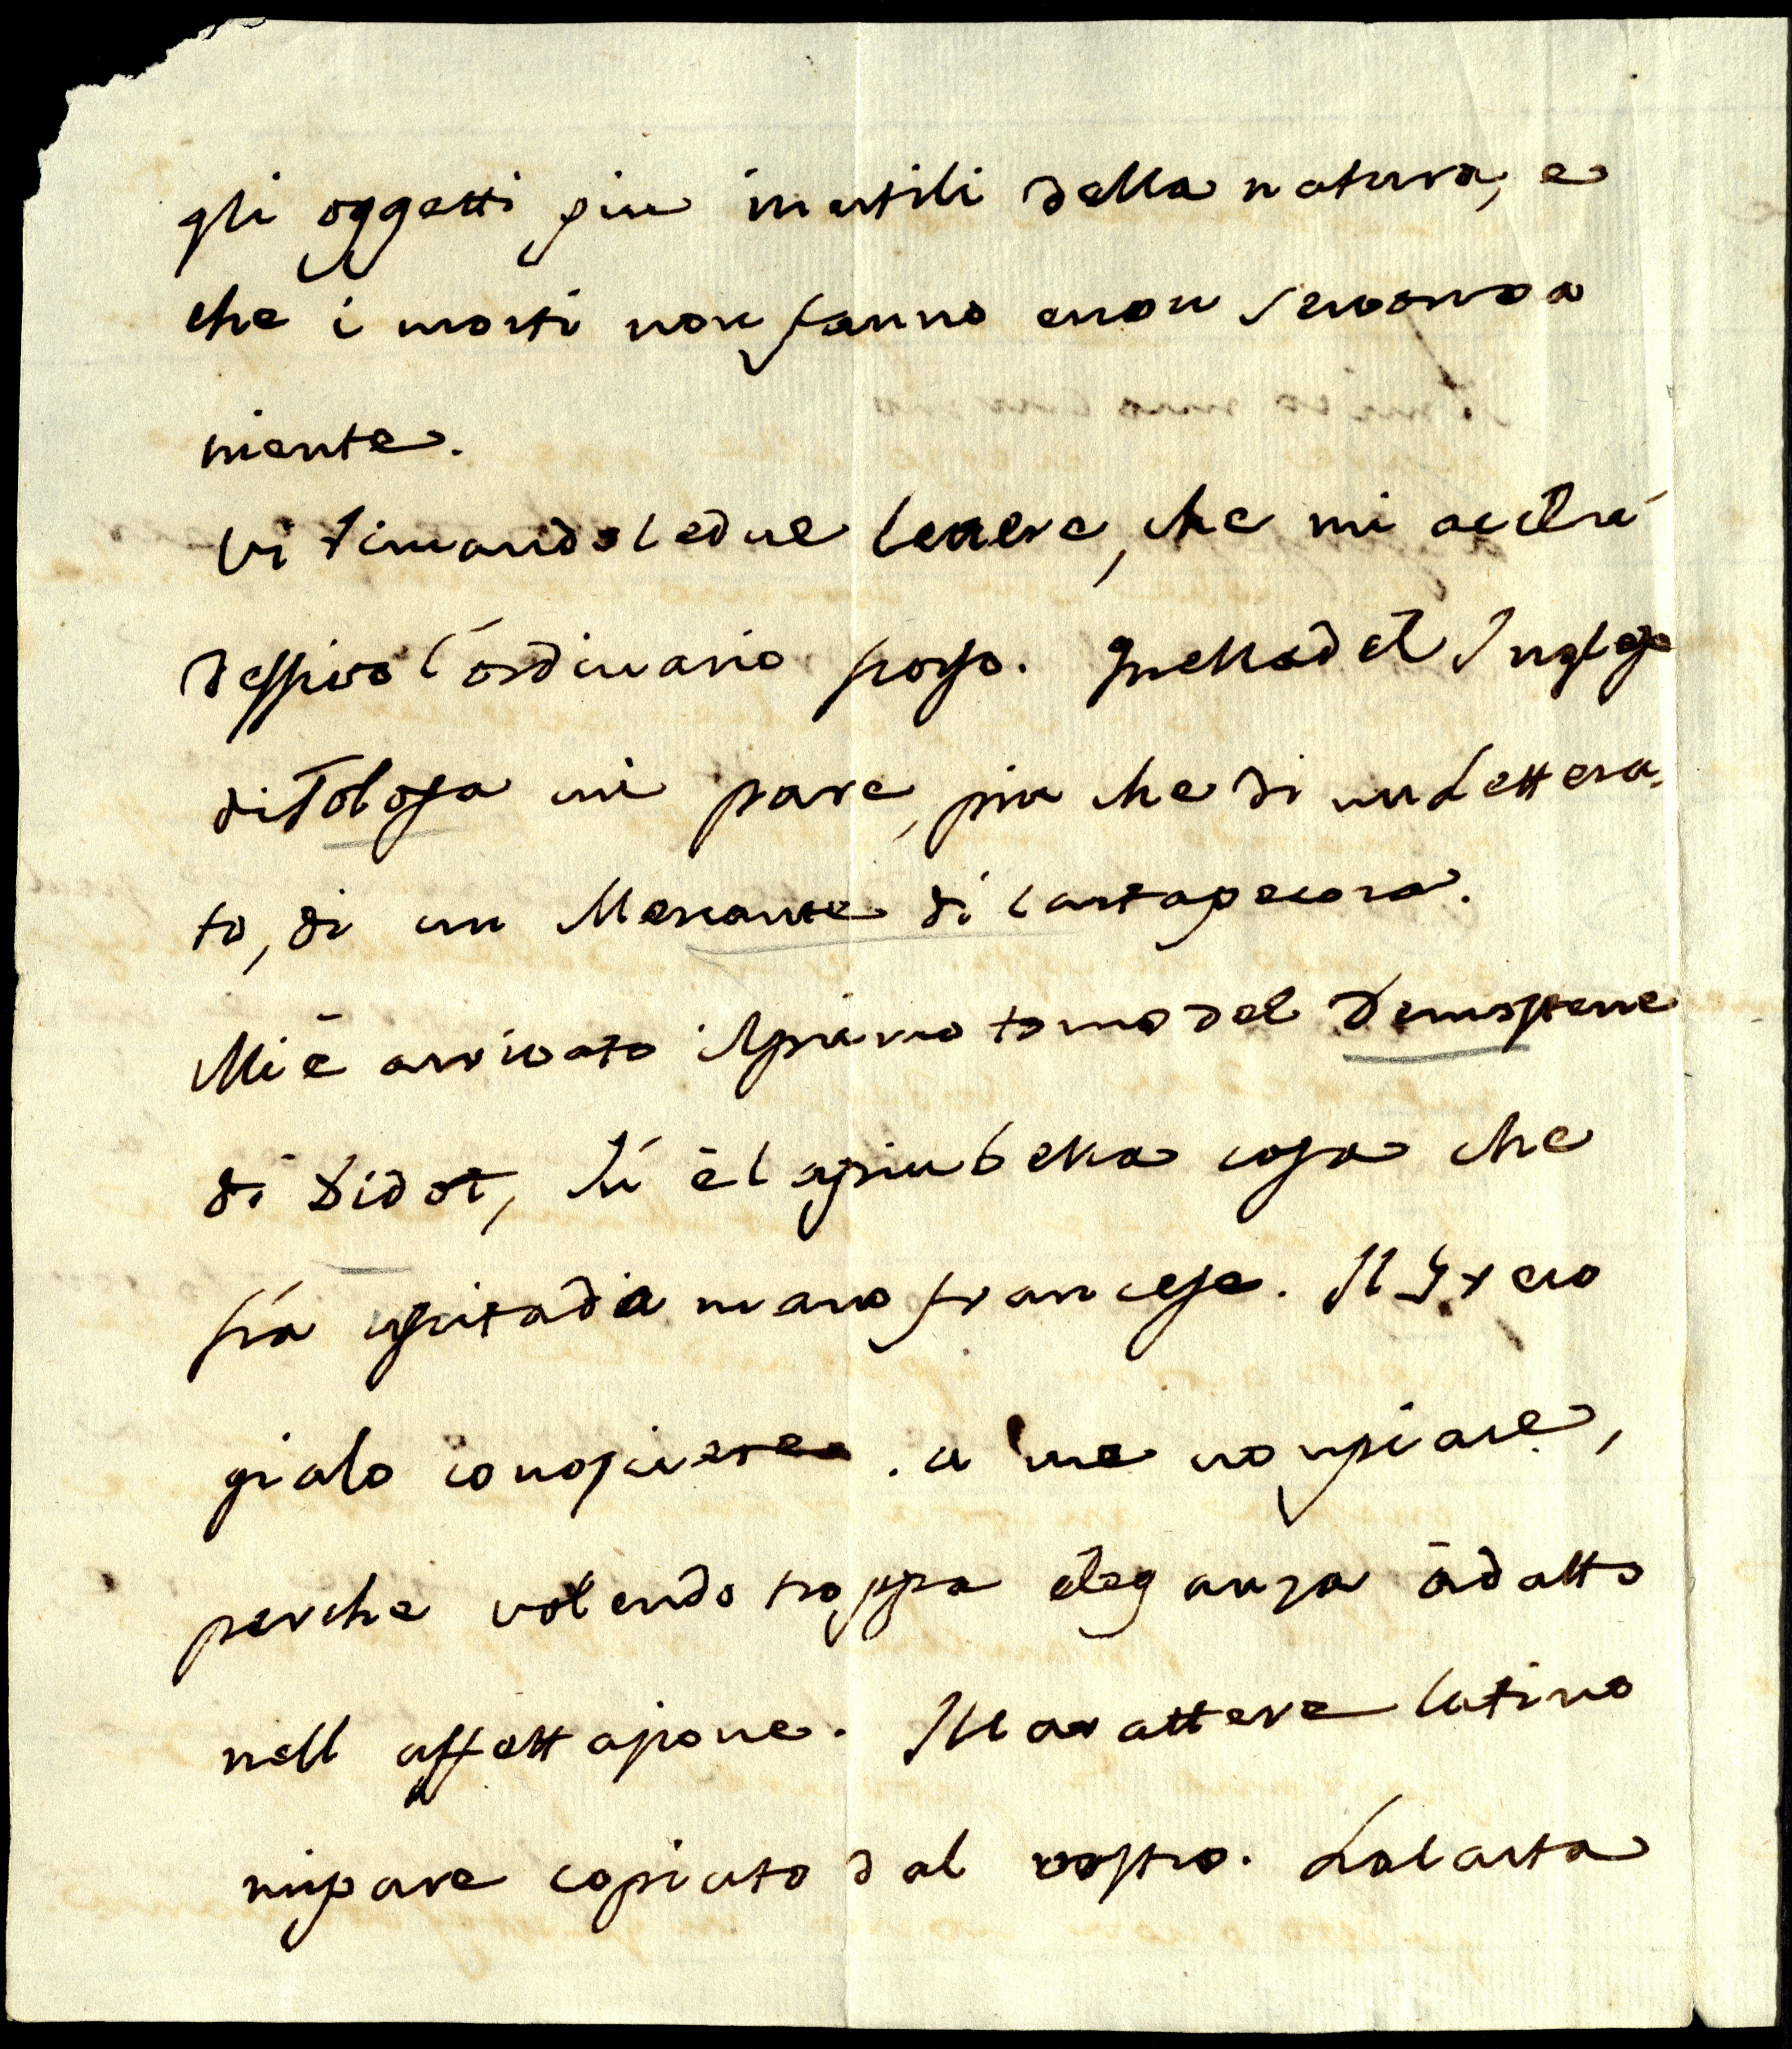 gli oggetti piu inutili della natura, e
che i morti non fanno e non servono a
niente.
Vi rimando le due lettere, che mi acclu
deste l'ordinario scorso. Quella del Inglese
di Tolosa mi pare, piu che di un Lettera
to, di un Mercante di cartapecora.
Mi è arrivato il primo tomo del Demostene
di Didot, è la piu bella cosa che
sia uscita da mano francese. Il Greco
gialo conoscerete. a me non piace,
perche volendo troppa eleganza à datto
nell affettazione. Il carattere latino
mi pare copiato dal vostro. La carta